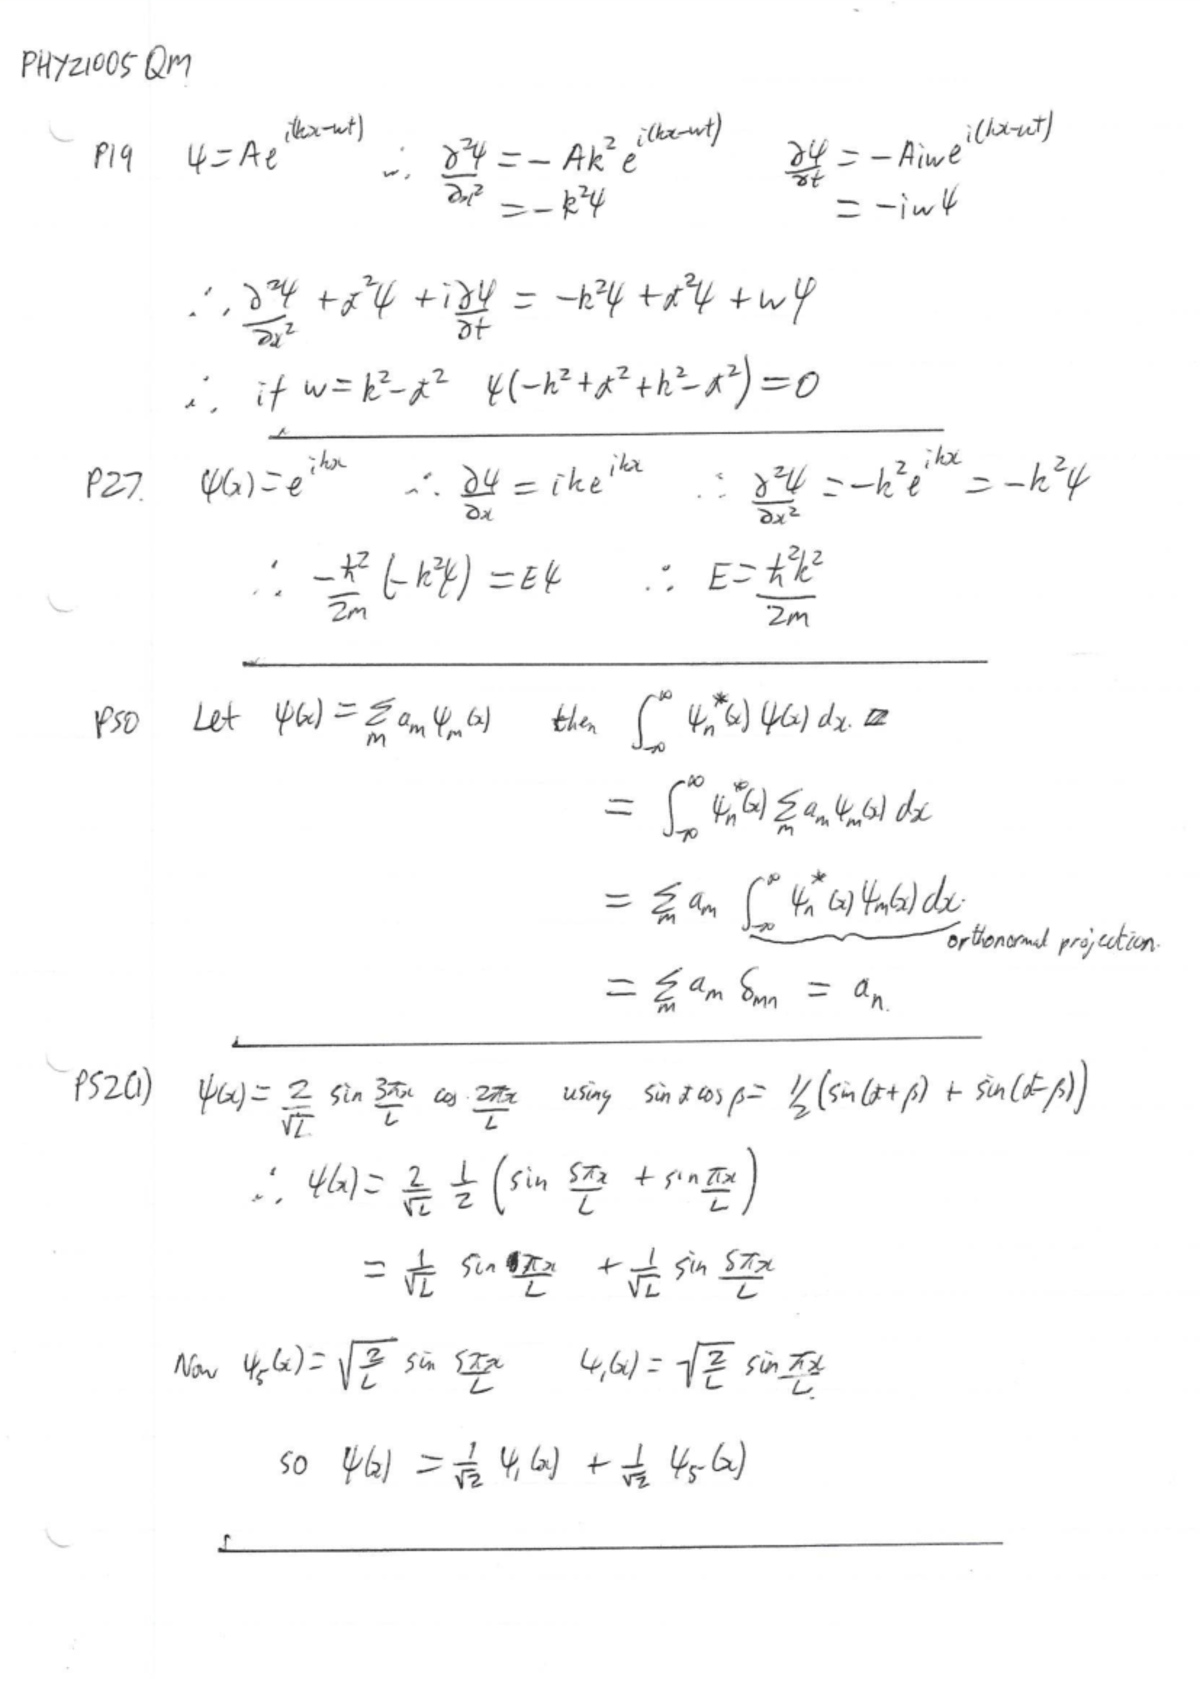 PHYZ1005 QM
P19 ψ = Ae^{i(kx-ωt)} ∴ ∂²ψ/∂x² = - Ak² e^{i(kx-ωt)} ∂ψ/∂t = - Aiωe^{i(kx-ωt)}
= - k²ψ = - iωψ
∴ ∂²ψ/∂x² + α²ψ + i∂ψ/∂t = -k²ψ + α²ψ + ωψ
∴ if ω = k² - α² ψ(-k² + α² + k² - α²) = 0
P27. ψ(x) = e^{ikx} ∴ ∂ψ/∂x = ike^{ikx} ∴ ∂²ψ/∂x² = -k²e^{ikx} = -k²ψ
∴ -ℏ²/2m (-k²ψ) = Eψ ∴ E = ℏ²k²/2m
P50 Let ψ(x) = Σ_m a_m ψ_m(x) then ∫_{-∞}^{∞} ψ_n*(x) ψ(x) dx.
= ∫_{-∞}^{∞} ψ_n*(x) Σ_m a_m ψ_m(x) dx
= Σ_m a_m ∫_{-∞}^{∞} ψ_n*(x) ψ_m(x) dx.
orthonormal projection.
= Σ_m a_m δ_mn = a_n.
P52(1) ψ(x) = 2/√L sin 3πx/L cos 2πx/L using sin α cos β = 1/2 (sin(α+β) + sin(α-β))
∴ ψ(x) = 2/√L 1/2 (sin 5πx/L + sin πx/L)
= 1/√L sin πx/L + 1/√L sin 5πx/L
Now ψ_5(x) = √(2/L) sin 5πx/L ψ_1(x) = √(2/L) sin πx/L.
so ψ(x) = 1/√2 ψ_1(x) + 1/√2 ψ_5(x)